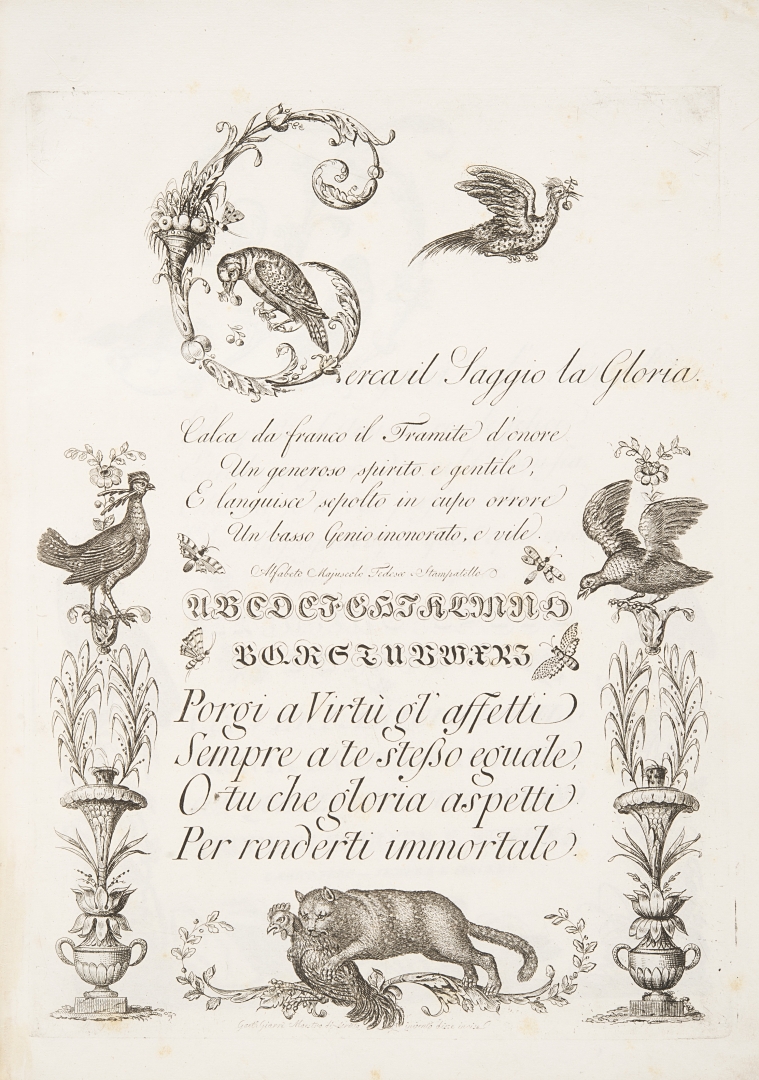 Cerca il Saggio la Gloria.
Calca da franco il Tramite d'onore
Un generoso spirito e gentile,
E languisce sepolto in cupo orrore
Un basso Genio inonorato, e vile.
Alfabeto Majuscolo Tedesco Stampatello
A B C D E F G H I K L M N O
P Q R S T U V W X Y Z
Porgi a Virtù gl' affetti
Sempre a te steſso eguale,
O tu che gloria aspetti
Per renderti immortale.